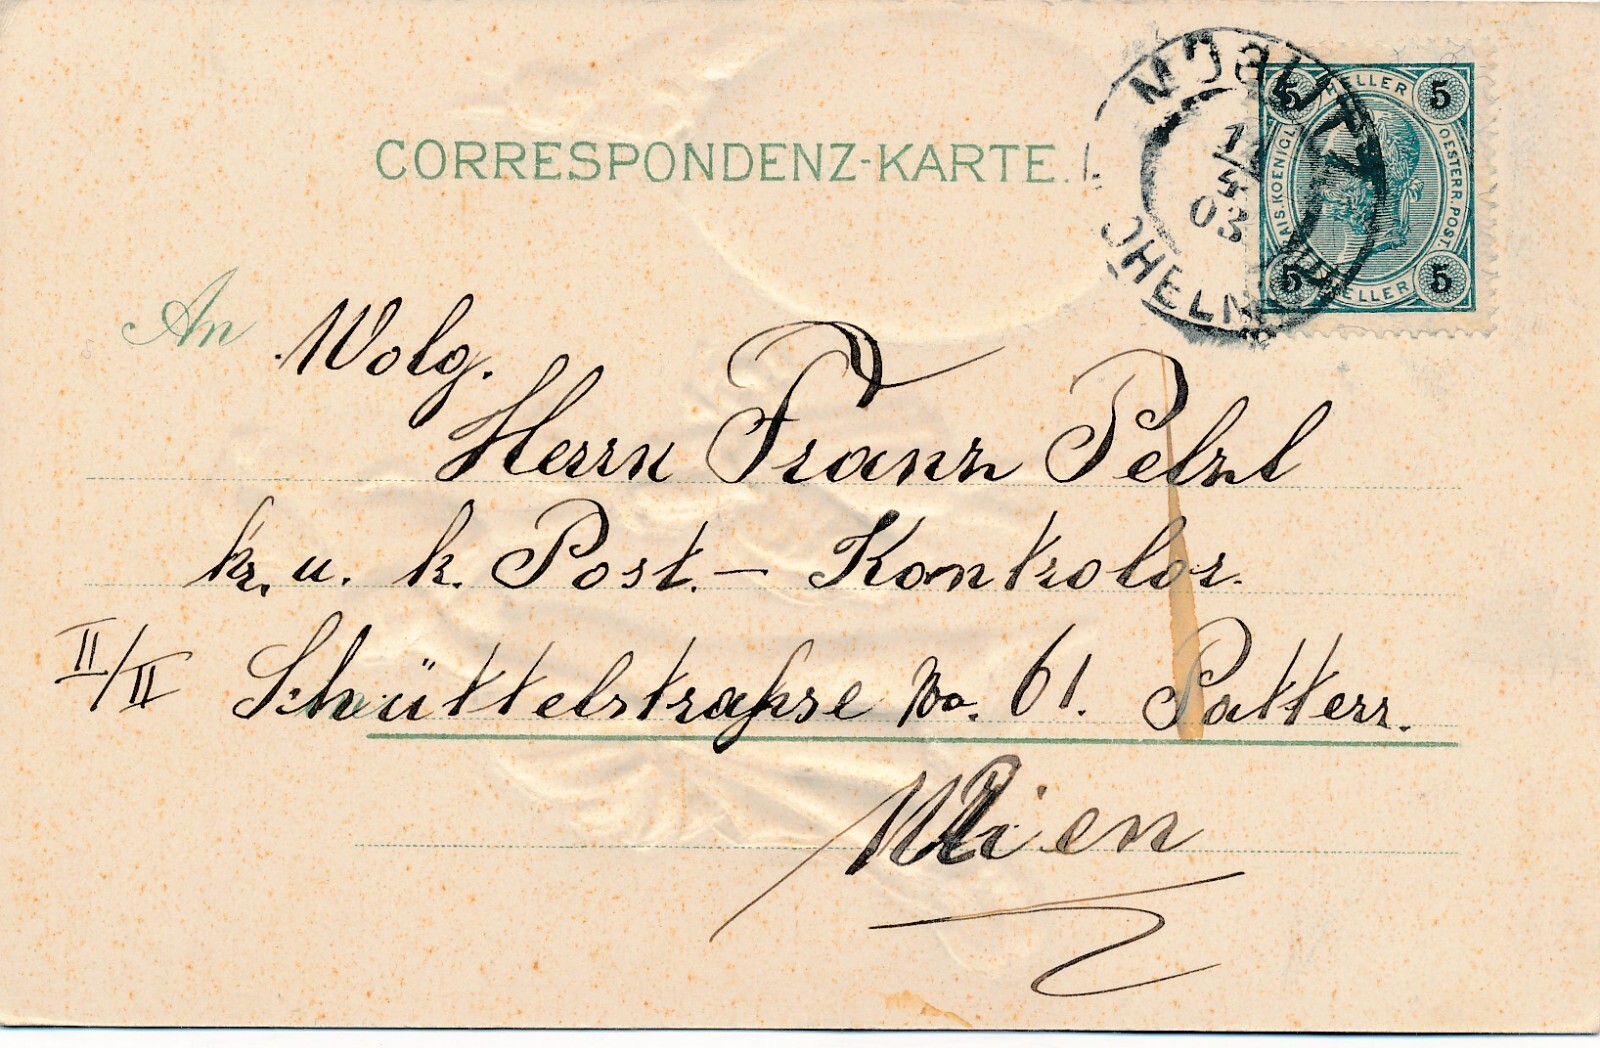 CORRESPONDENZ-KARTE.
5 HELLER 5
KAIS. KOENIGL. OESTERR. POST.
5 HELLER 5
03
An Wolg.
Herrn Franz Pelzl
k. u. k. Post.- Kontrolor.
II/II Schüttelstraße No. 61. Patterr.
Wien